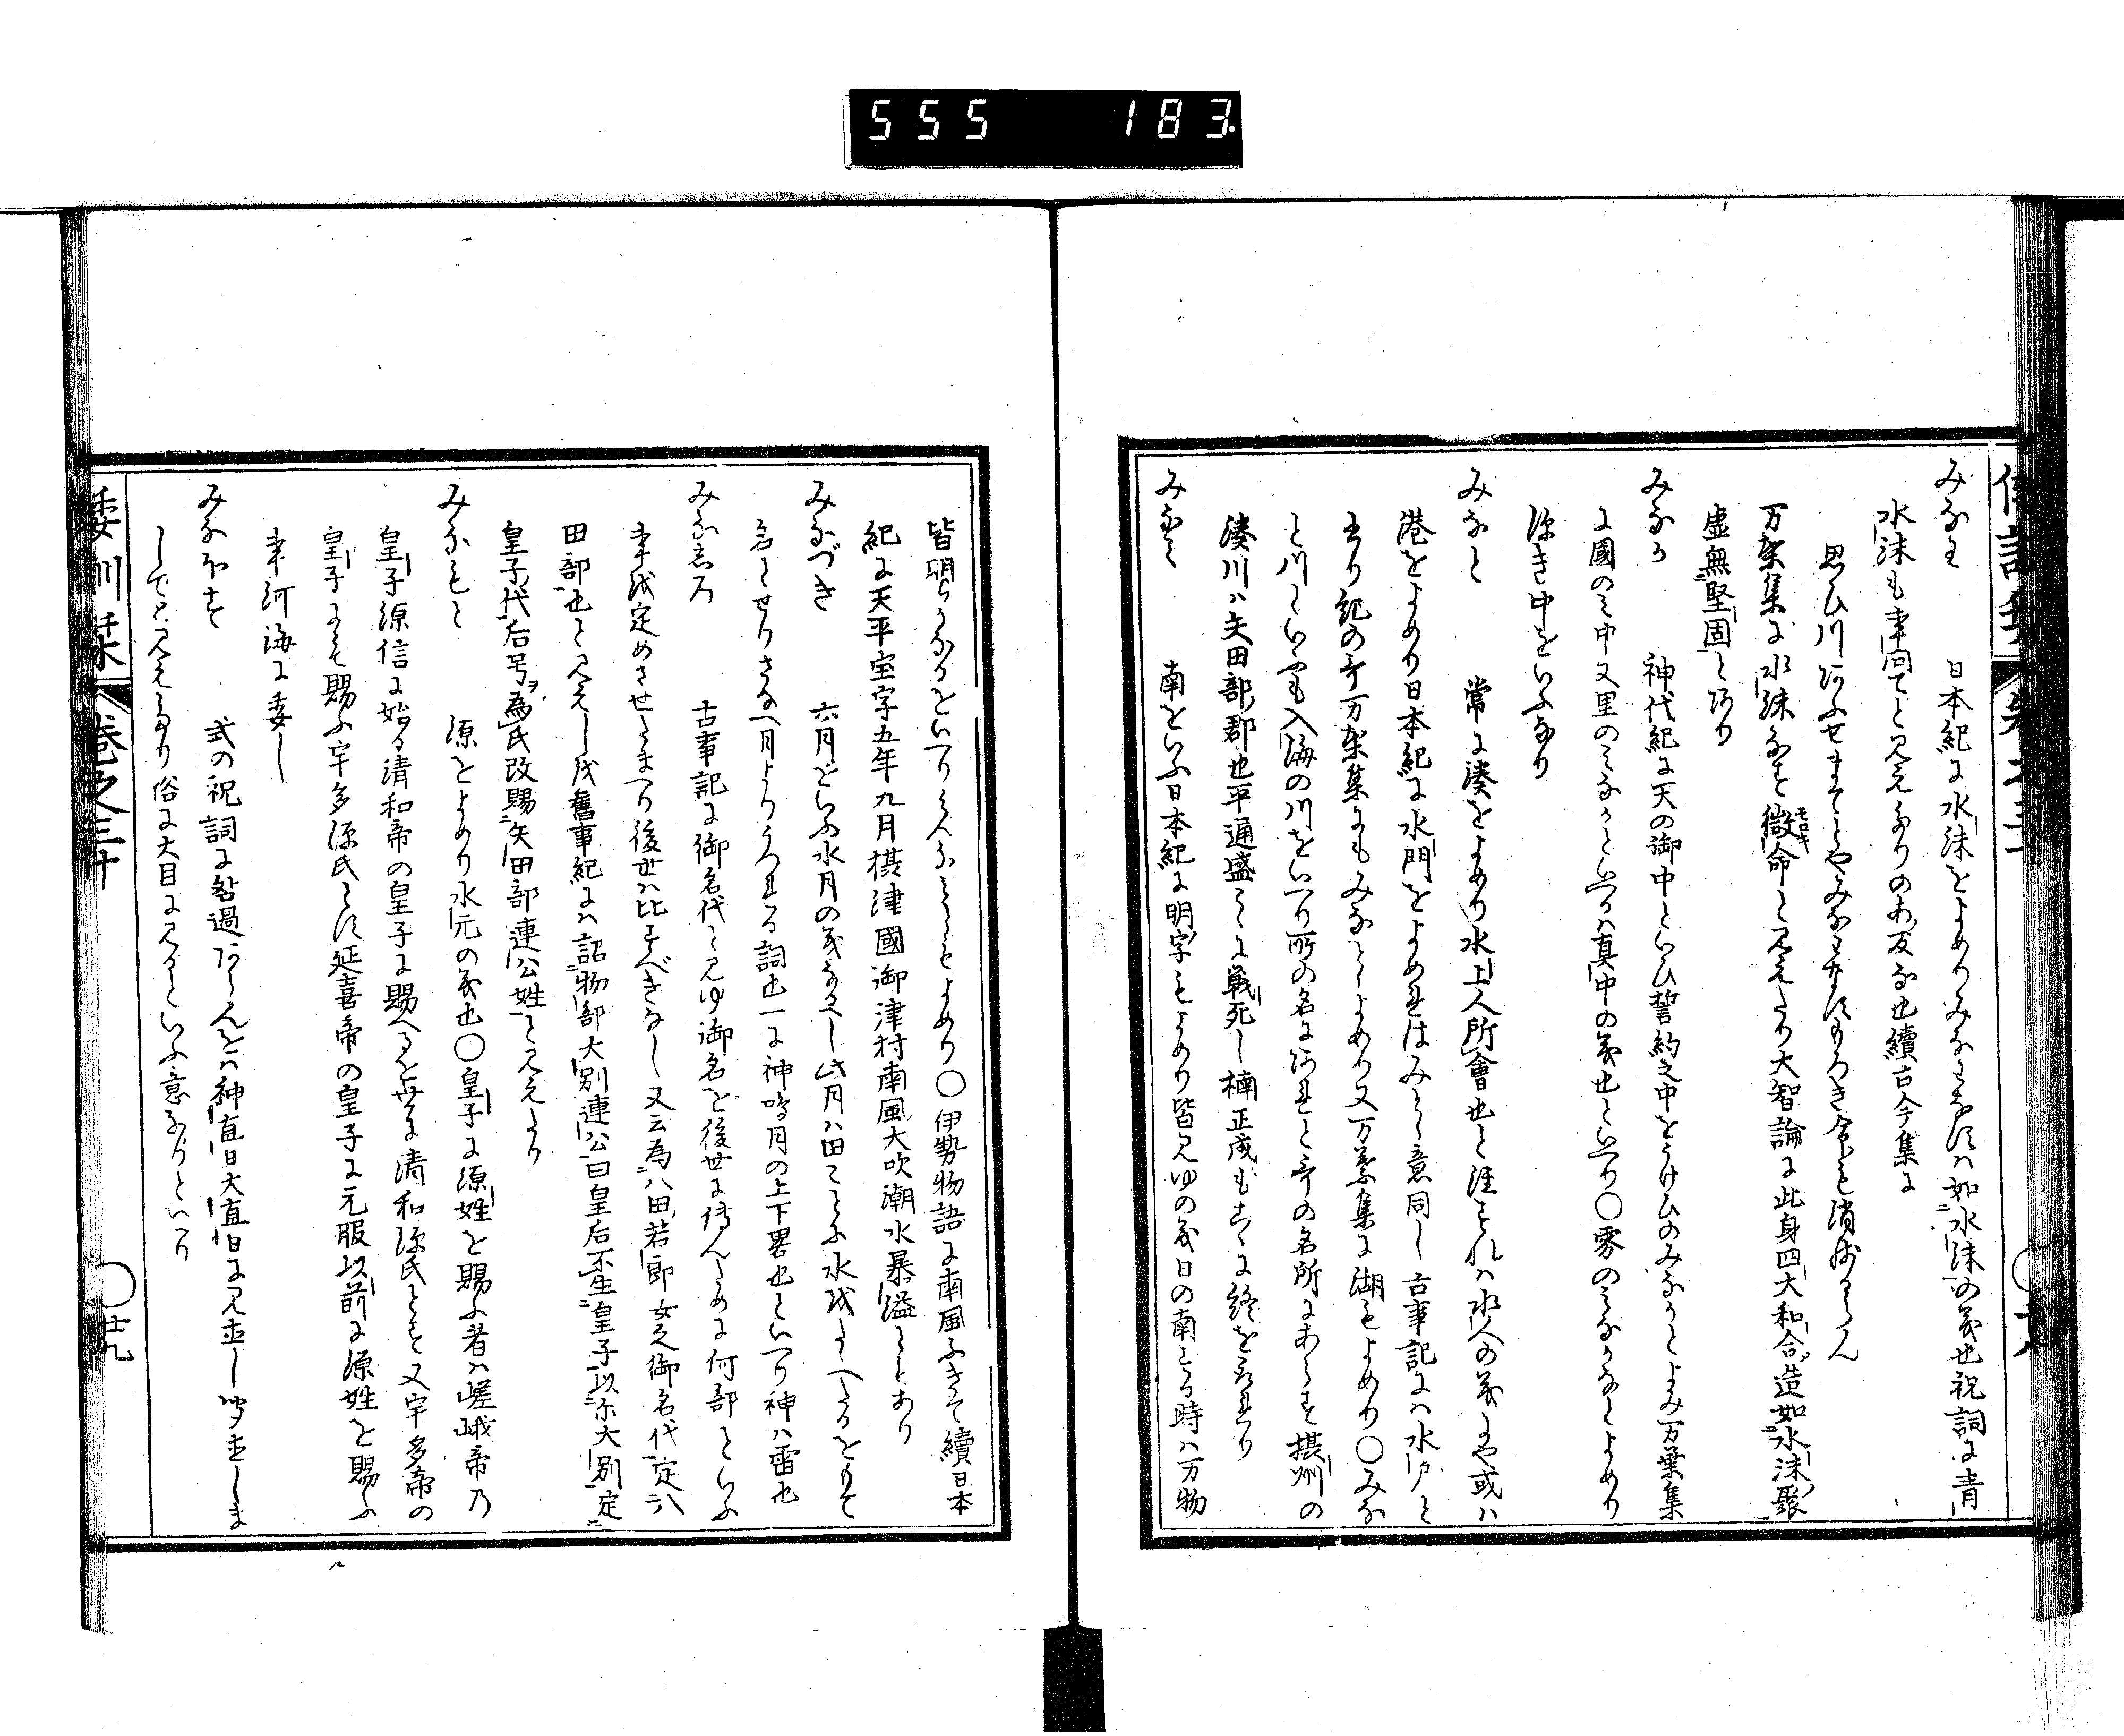 555 183
みなわ 日本紀に水沫をよめりみなわなすハ如水沫の義也祝詞に青
水沫も事問てと見えたりのあ反な也續古今集に
思ひ川あふせまてとやみなわなすもろき命も消残るらん
万葉集に水沫なす微命と見えたり大智論に此身四大和合造如水沫聚
モロキ
虚無堅固とあり
みなか 神代紀に天の御中といひ誓約之中をうけひのみなかとよみ万葉集
に國のみ中又里のみなかといへるハ真中の義也といへり〇雰のみなかなとよめり
深き中をいふなり
みなと 常に湊をよめり水上人所會也と注すれハ水人の義にや或ハ
港をよめり日本紀に水門をよめるはみと意同し古事記にハ水戸と
あり記の哥万葉集にもみなとゝよめり又万葉集に湖もよめり〇みな
と川といへるも入海の川をいへり所の名にあれと哥の名所にあらす摂州の
湊川ハ矢田部郡也平通盛こゝに戦死し楠正成もこゝに終を取れり
みなみ 南をいふ日本紀に明字もよめり皆見ゆの義日の南する時ハ万物
皆明らかなるをいへり みんなみともよめり〇伊勢物語に南風ふきて續日本
紀に天平宝字五年九月摂津國御津村南風大吹潮水暴溢ともあり
みなづき 六月をいふ水月の義なるへし此月ハ田ことに水をたゝへたるをもて
名とせりさなへ月よりうつれる詞也一に神鳴月の上下畧也といへり神ハ雷也
みなしろ 古事記に御名代と見ゆ御名を後世に傳んために何部といふ
事を定めさせたまへり後世ハ比すべきなし又云為八田若郎女之御名代定八
田部也と見えしを舊事紀にハ詔物部大別連公曰皇后不生皇子以尓大別定
皇子代后号ヲ為氏改賜矢田部連公姓と見えたり
みなもと 源をよめり水元の義也〇皇子に源姓を賜ふ者ハ嵯峨帝乃
皇子源信に始る清和帝の皇子に賜へるを世に清和源氏とす又宇多帝の
皇子にも賜ふ宇多源氏とす延喜帝の皇子に元服以前に源姓を賜ふ
事河海に委し
みなほす 式の祝詞に咎過あらんをハ神直日大直日に見直し聞直しま
しでと見えたり俗に大目に見るといふ意なりといへり
倭訓栞 巻之三十 〇廿九